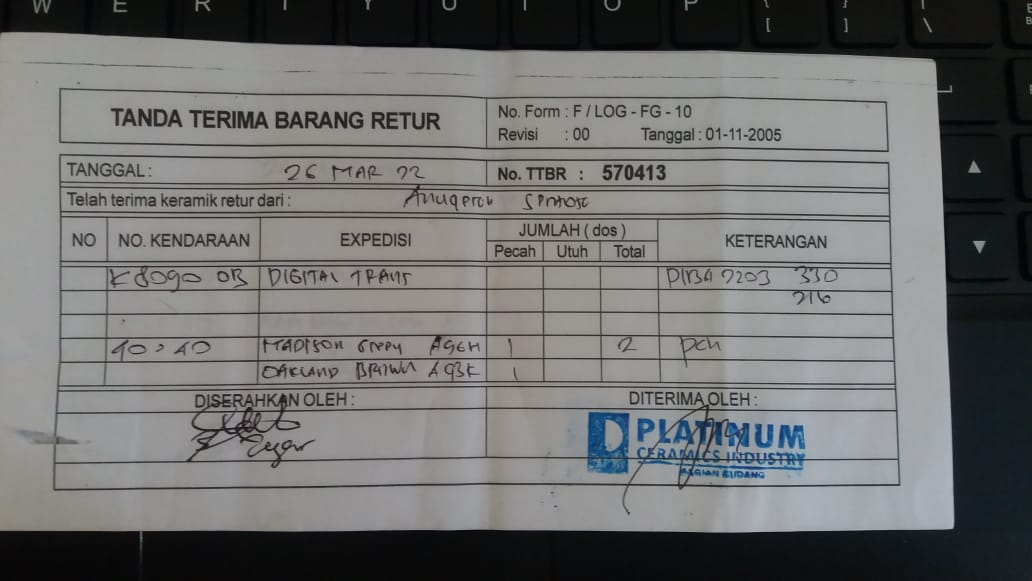 W E R T Y U I O P { [ } ] | \
TANDA TERIMA BARANG RETUR
No. Form : F / LOG - FG - 10
Revisi : 00 Tanggal : 01-11-2005
TANGGAL : 26 MAR 22
No. TTBR : 570413
Telah terima keramik retur dari :
NO NO. KENDARAAN EXPEDISI JUMLAH ( dos ) KETERANGAN
Pecah Utuh Total
K 8090 OB DIGITAL TRANS 330
216
40 x 40 MADISON GREY 1 2
OAKLAND BROWN 1
DISERAHKAN OLEH : DITERIMA OLEH :
PLATINUM
CERAMICS INDUSTRY
BAGIAN GUDANG